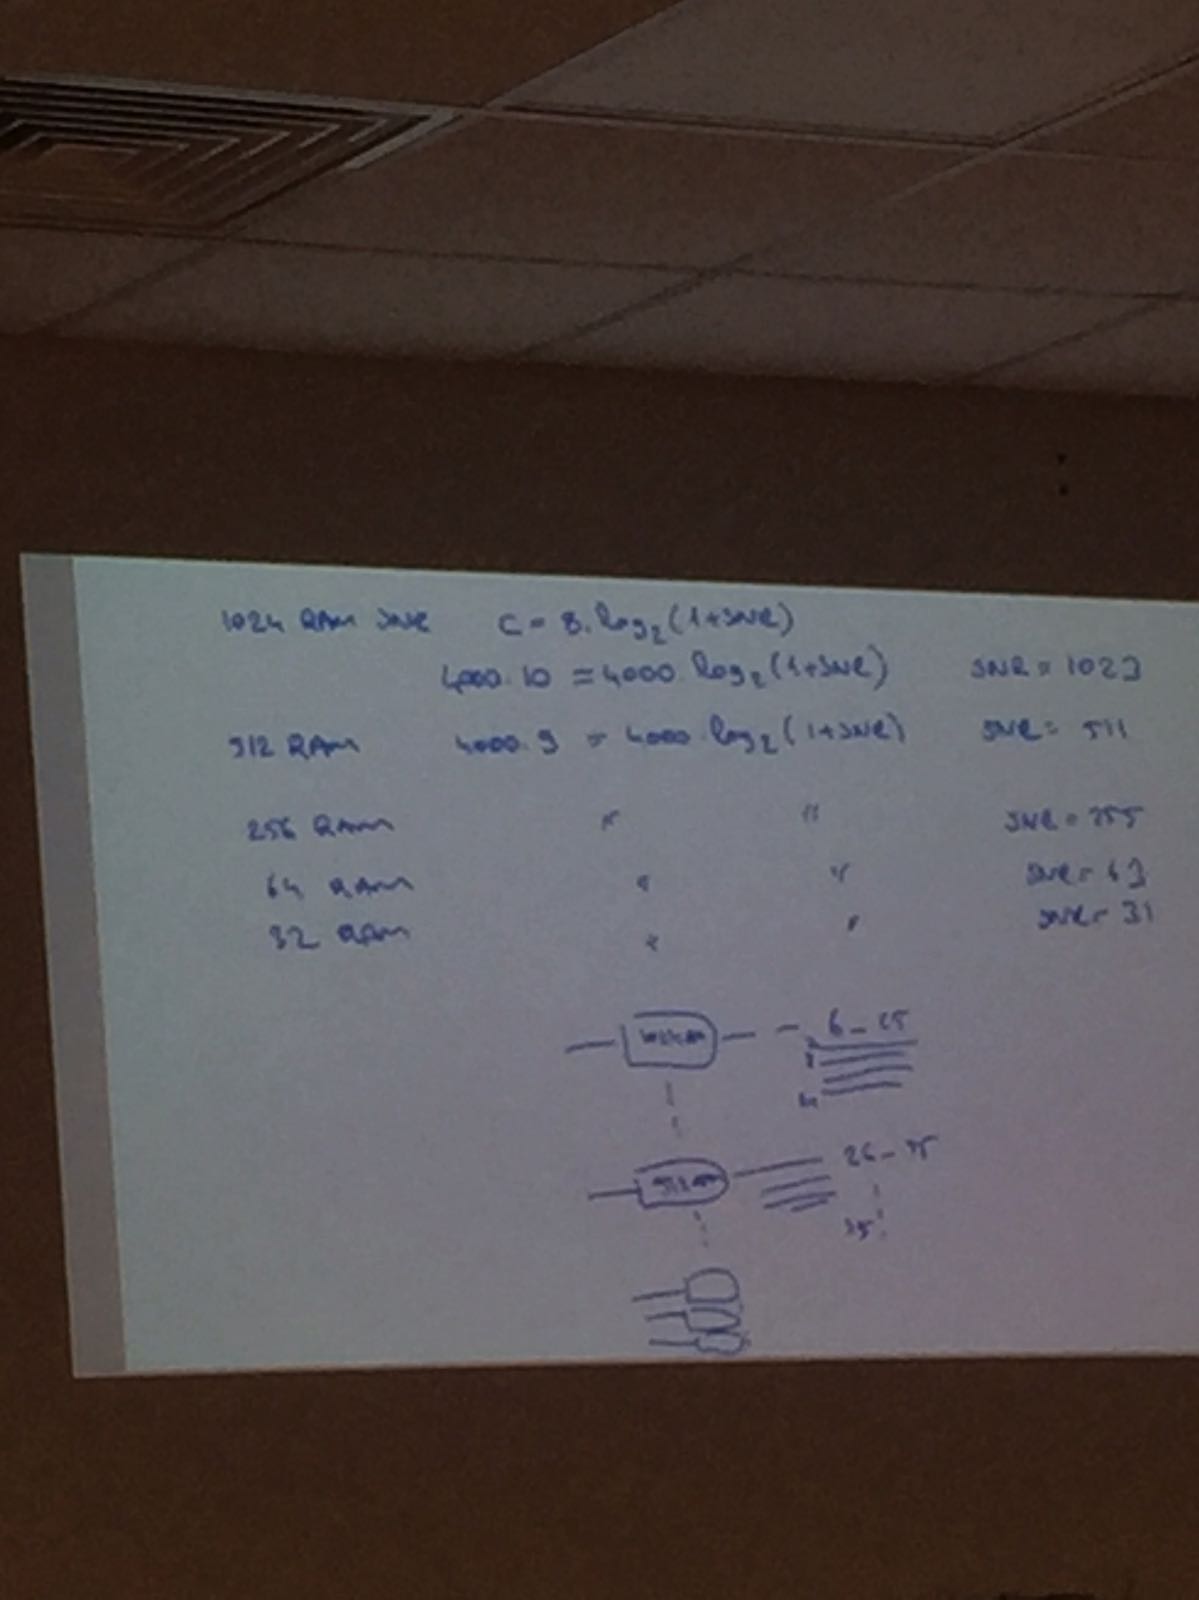 1024 QAM SNR C = B.log₂(1+SNR)
4000.10 = 4000 log₂(1+SNR) SNR = 1023
512 QAM 4000.9 = 4000.log₂(1+SNR) SNR = 511
256 QAM " " SNR = 255
64 QAM " " SNR = 63
32 QAM " " SNR = 31
6-25
26-35